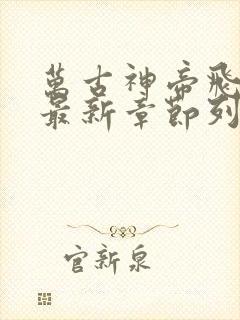 萬古神帝飛
最新章節列
官新泉